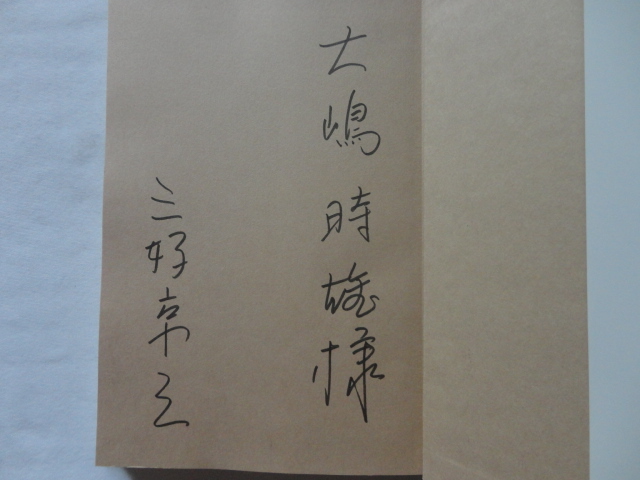 大嶋時雄様
三好京三